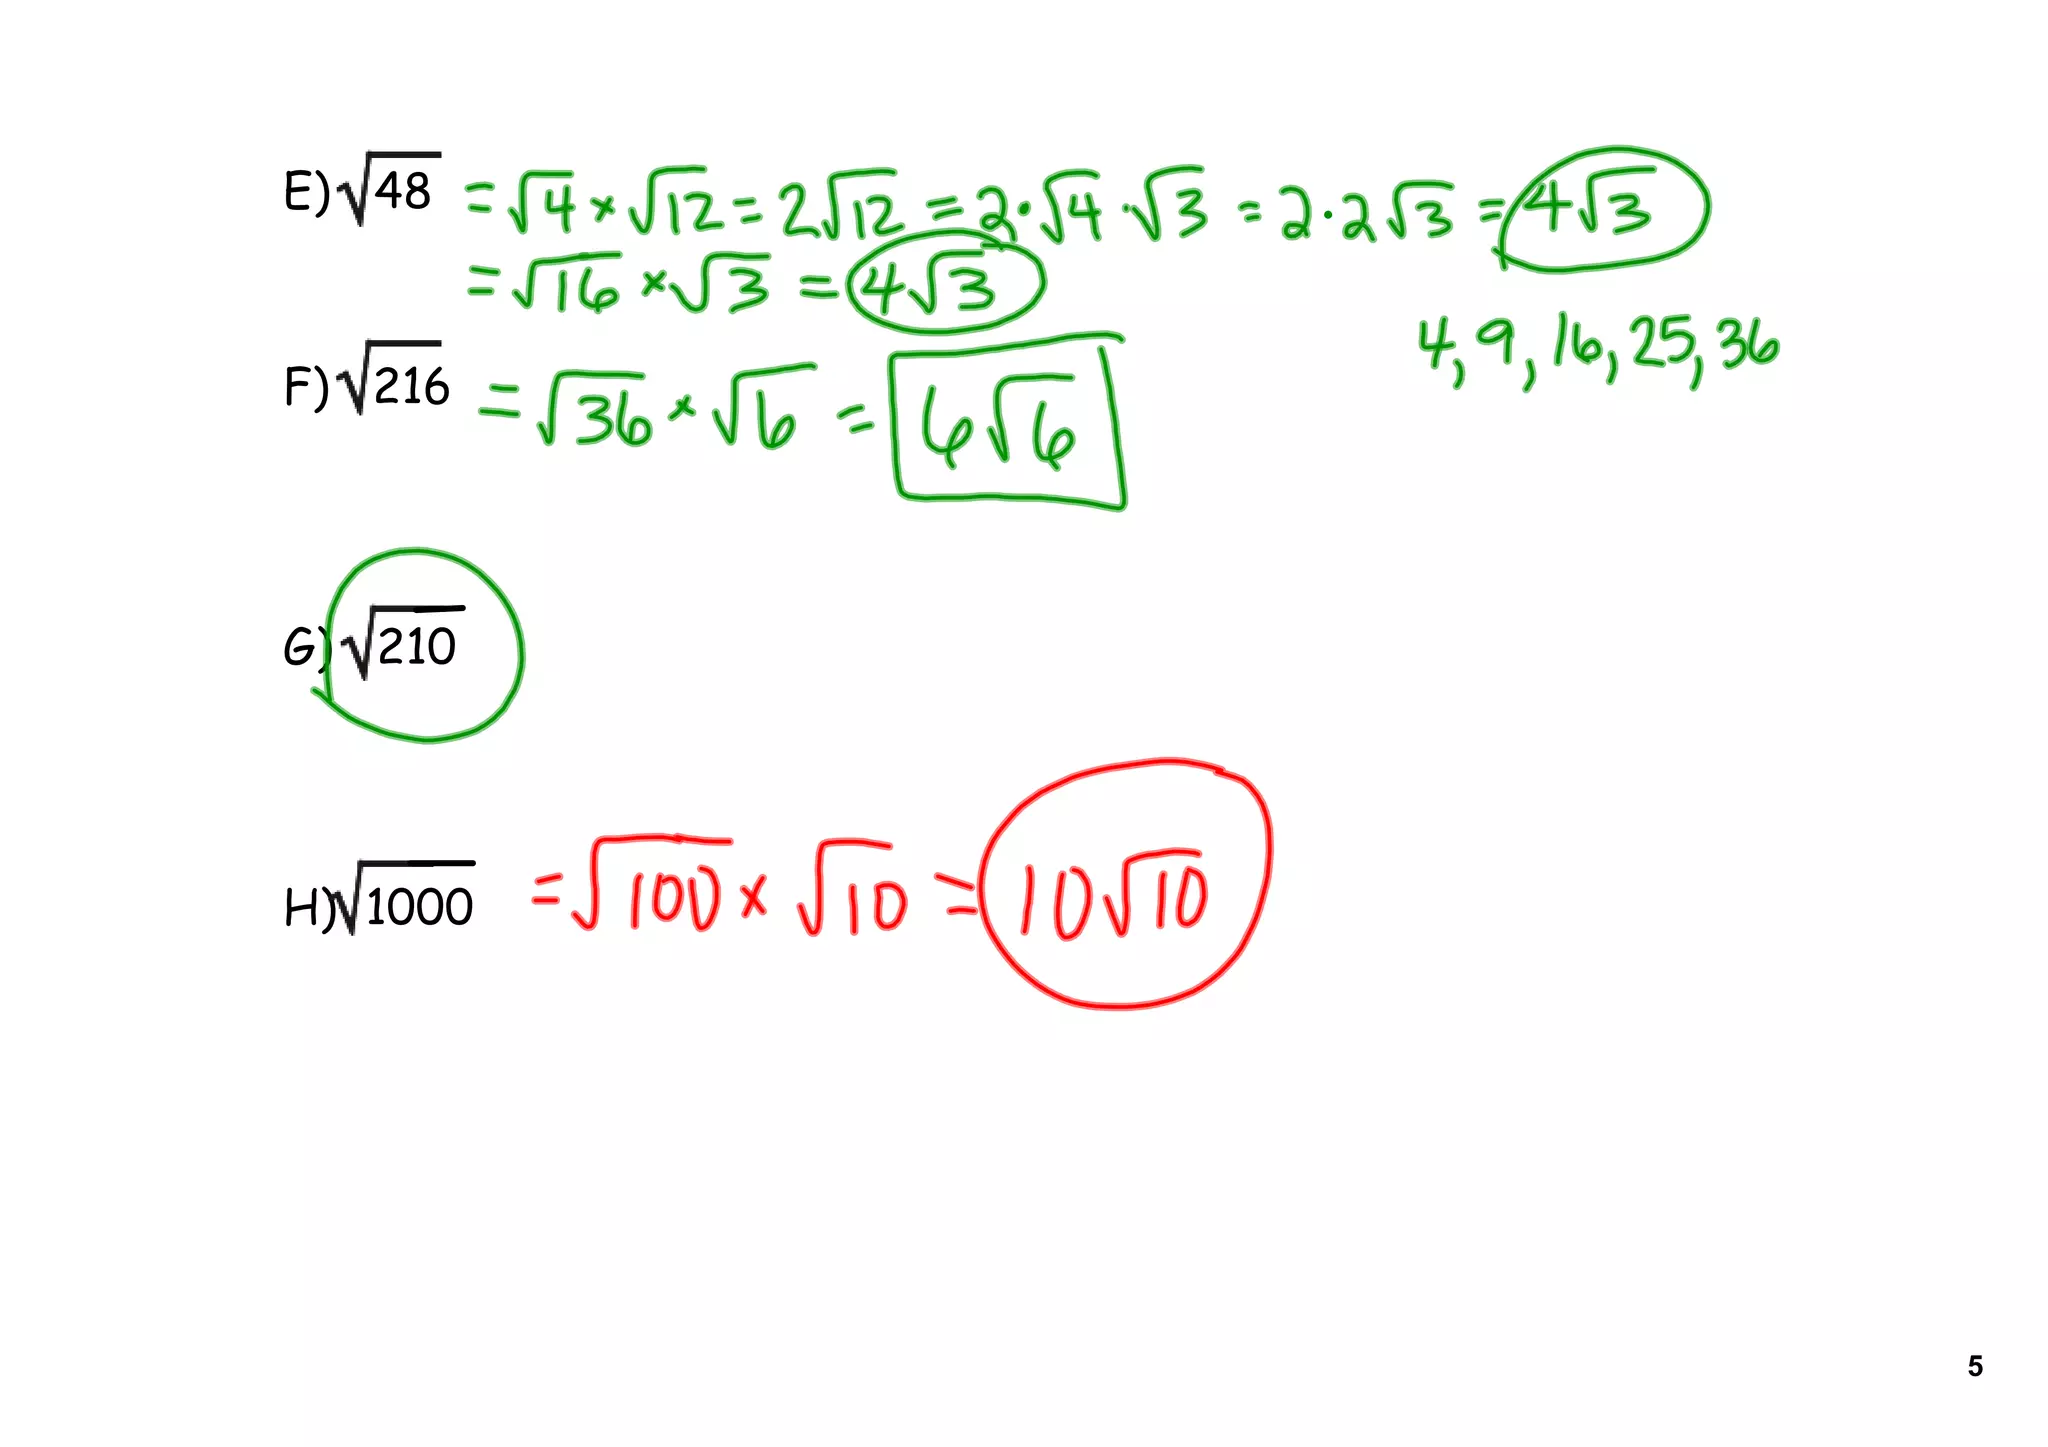 E) √48 = √4 × √12 = 2√12 = 2·√4·√3 = 2·2√3 = 4√3
= √16 × √3 = 4√3
4, 9, 16, 25, 36
F) √216 = √36 × √6 = 6√6
G) √210
H) √1000 = √100 × √10 = 10√10
5